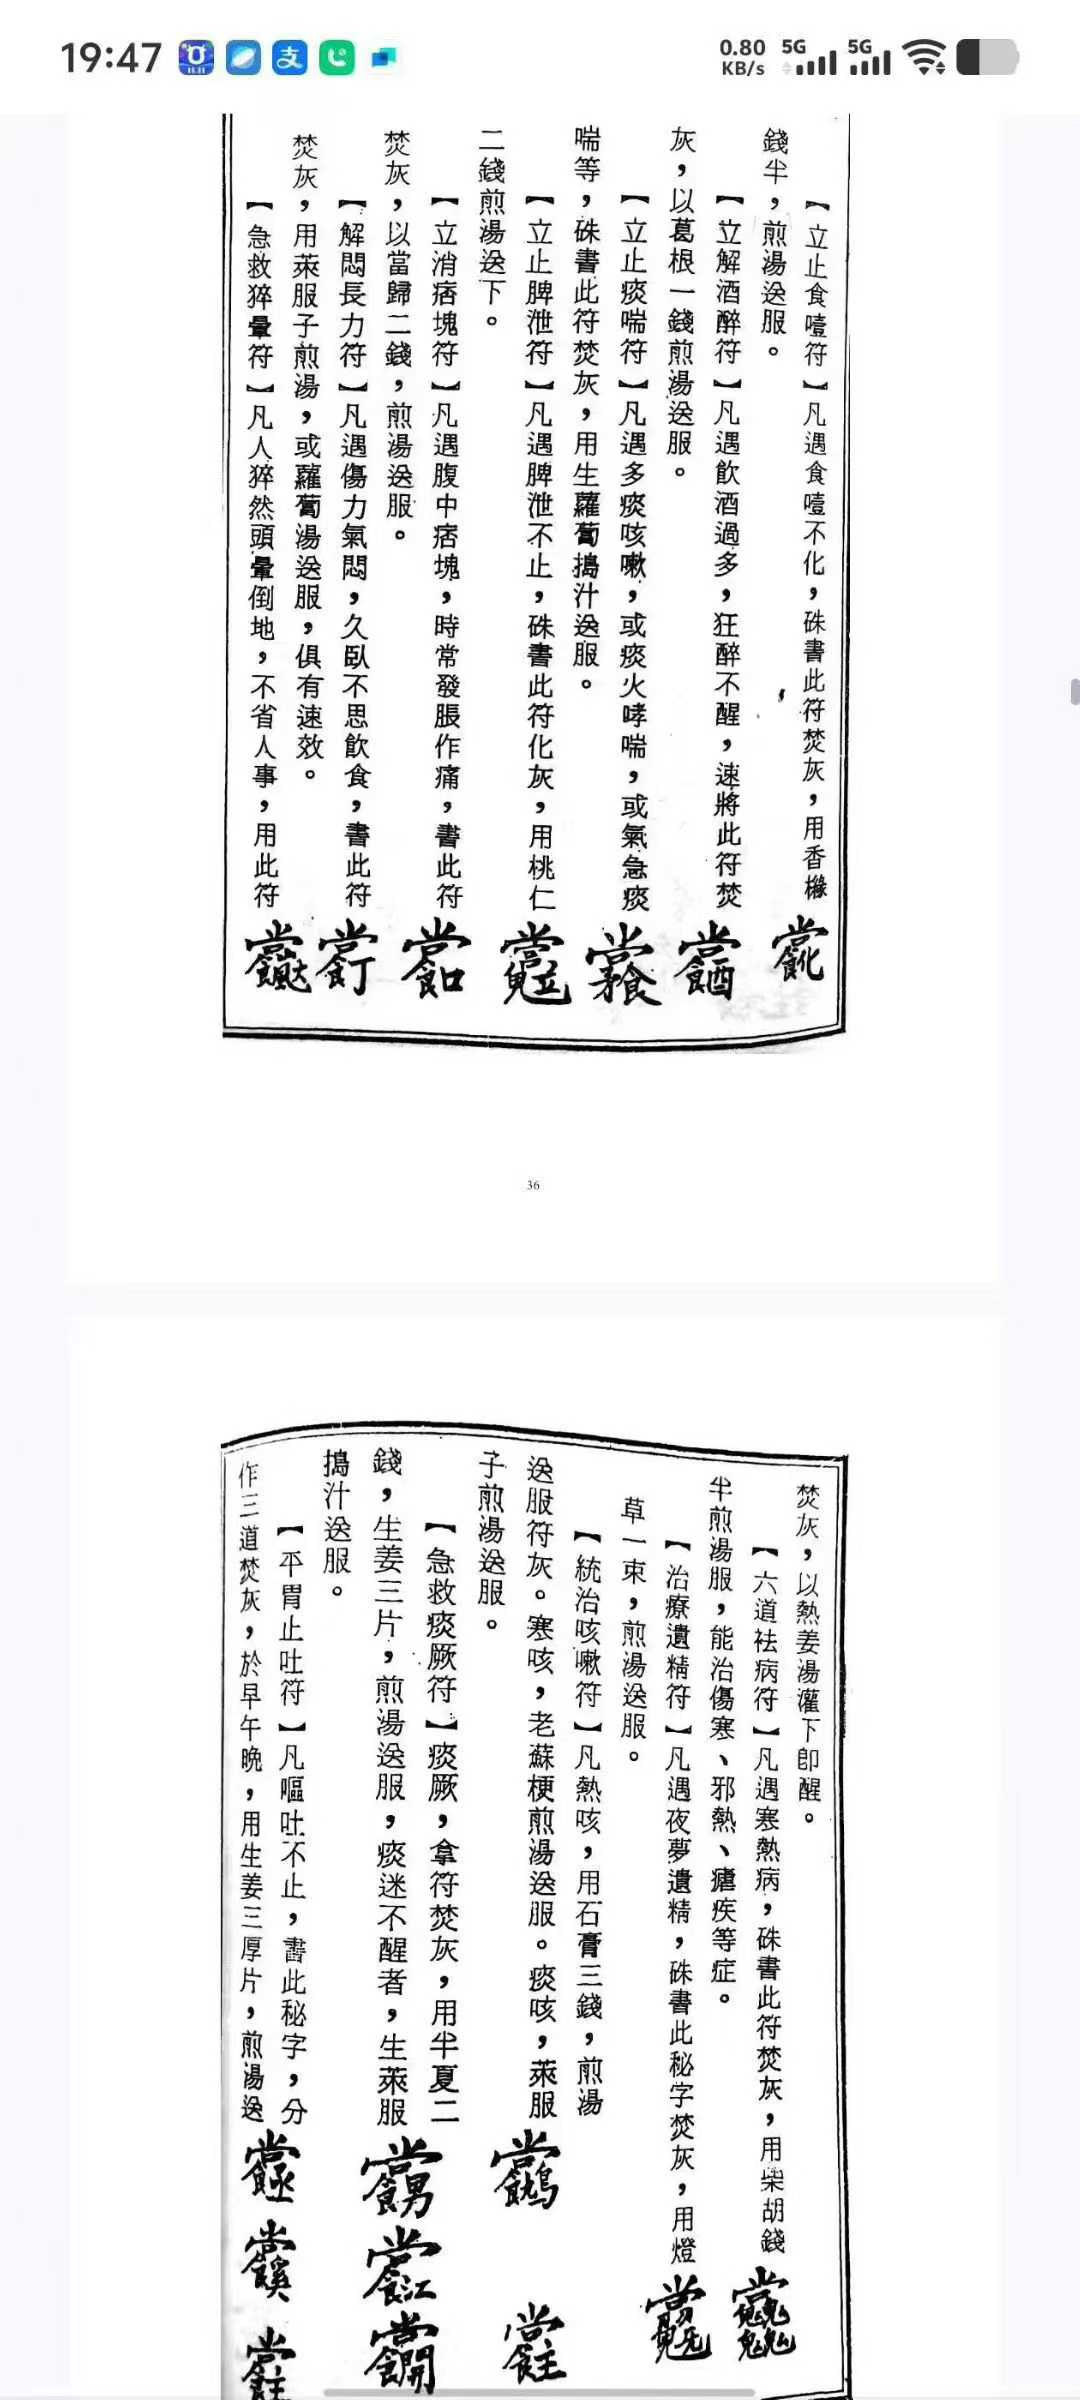 19:47
0.80 KB/s 5G 5G
【立止食噎符】凡遇食噎不化，硃書此符焚灰，用香櫞
錢半，煎湯送服。
【立解酒醉符】凡遇飲酒過多，狂醉不醒，速將此符焚
灰，以葛根一錢煎湯送服。
【立止痰喘符】凡遇多痰咳嗽，或痰火哮喘，或氣急痰
喘等，硃書此符焚灰，用生蘿蔔搗汁送服。
【立止脾泄符】凡遇脾泄不止，硃書此符化灰，用桃仁
二錢煎湯送下。
【立消痞塊符】凡遇腹中痞塊，時常發脹作痛，書此符
焚灰，以當歸二錢，煎湯送服。
【解悶長力符】凡遇傷力氣悶，久臥不思飲食，書此符
焚灰，用萊服子煎湯，或蘿蔔湯送服，俱有速效。
【急救猝暈符】凡人猝然頭暈倒地，不省人事，用此符
36
焚灰，以熱姜湯灌下即醒。
【六道祛病符】凡遇寒熱病，硃書此符焚灰，用柴胡錢
半煎湯服，能治傷寒、邪熱、瘧疾等症。
【治療遺精符】凡遇夜夢遺精，硃書此秘字焚灰，用燈
草一束，煎湯送服。
【統治咳嗽符】凡熱咳，用石膏三錢，煎湯
送服符灰。寒咳，老蘇梗煎湯送服。痰咳，萊服
子煎湯送服。
【急救痰厥符】痰厥，拿符焚灰，用半夏二
錢，生姜三片，煎湯送服，痰迷不醒者，生萊服
搗汁送服。
【平胃止吐符】凡嘔吐不止，書此秘字，分
作三道焚灰，於早午晚，用生姜三厚片，煎湯送